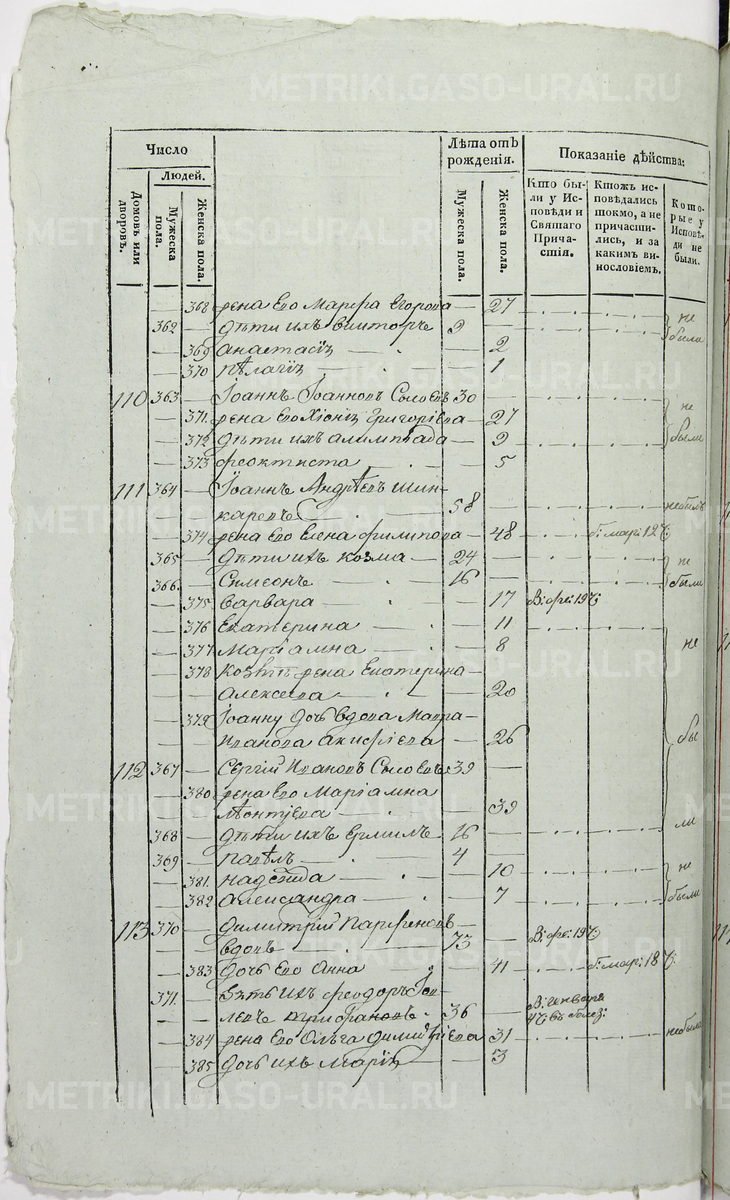 Число
Людей.
Домовъ или дворовъ.
Мужеска пола.
Женска пола.
Лѣта отъ рожденія.
Мужеска пола.
Женска пола.
Показаніе дѣйства:
Кто были у Исповѣди и Святаго Причастія.
Ктожъ исповѣдались токмо, а не причастились, и за какимъ винословіемъ.
Которые у Исповѣди не были.
368 жена Его Марѳа Егорова 27 не
362 дѣти ихъ Викторъ 9 были
369 Анастасія 2
370 Пелагія 1
110 363 Іоаннъ Іоанновъ Соловьевъ 30
371. жена Его Хіонія Григоріева 27 не
372 дѣти ихъ Алимпіада 9 были
373 Феоктиста 5
111 364 Іоаннъ Андреевъ Шин-
каревъ 58 небылъ
374 жена Его Елена Филипова 48 мар: 12
365 дѣти ихъ Козма 24 не
366. Симеонъ 16 были
375 Варвара 17 В: фе: 19
376 Екатерина 11
377 Маріамна 8 не
378 жена Екатерина
Алексеева 20
379 Іоанну дочь вдова Мавра
Иванова 26 бы
112 367 Сергій Ивановъ Соловьевъ 39
380 жена Его Маріамна
Леонтіева 39
368 дѣти ихъ Ермилъ 16 ли
369 Павелъ 4
381. Надежда 10 не
382 Александра 7 были
113 370 Димитрій Парфеновъ
вдовъ 73 В: фе: 19
383 дочь Его Анна 41 мар: 18
371. зять ихъ Феодоръ
Трифановъ 36 В: генваря
384 жена Его Ольга Димитріева 31 небыла
385 дочь ихъ Марія 3
METRIKI.GASO-URAL.RU